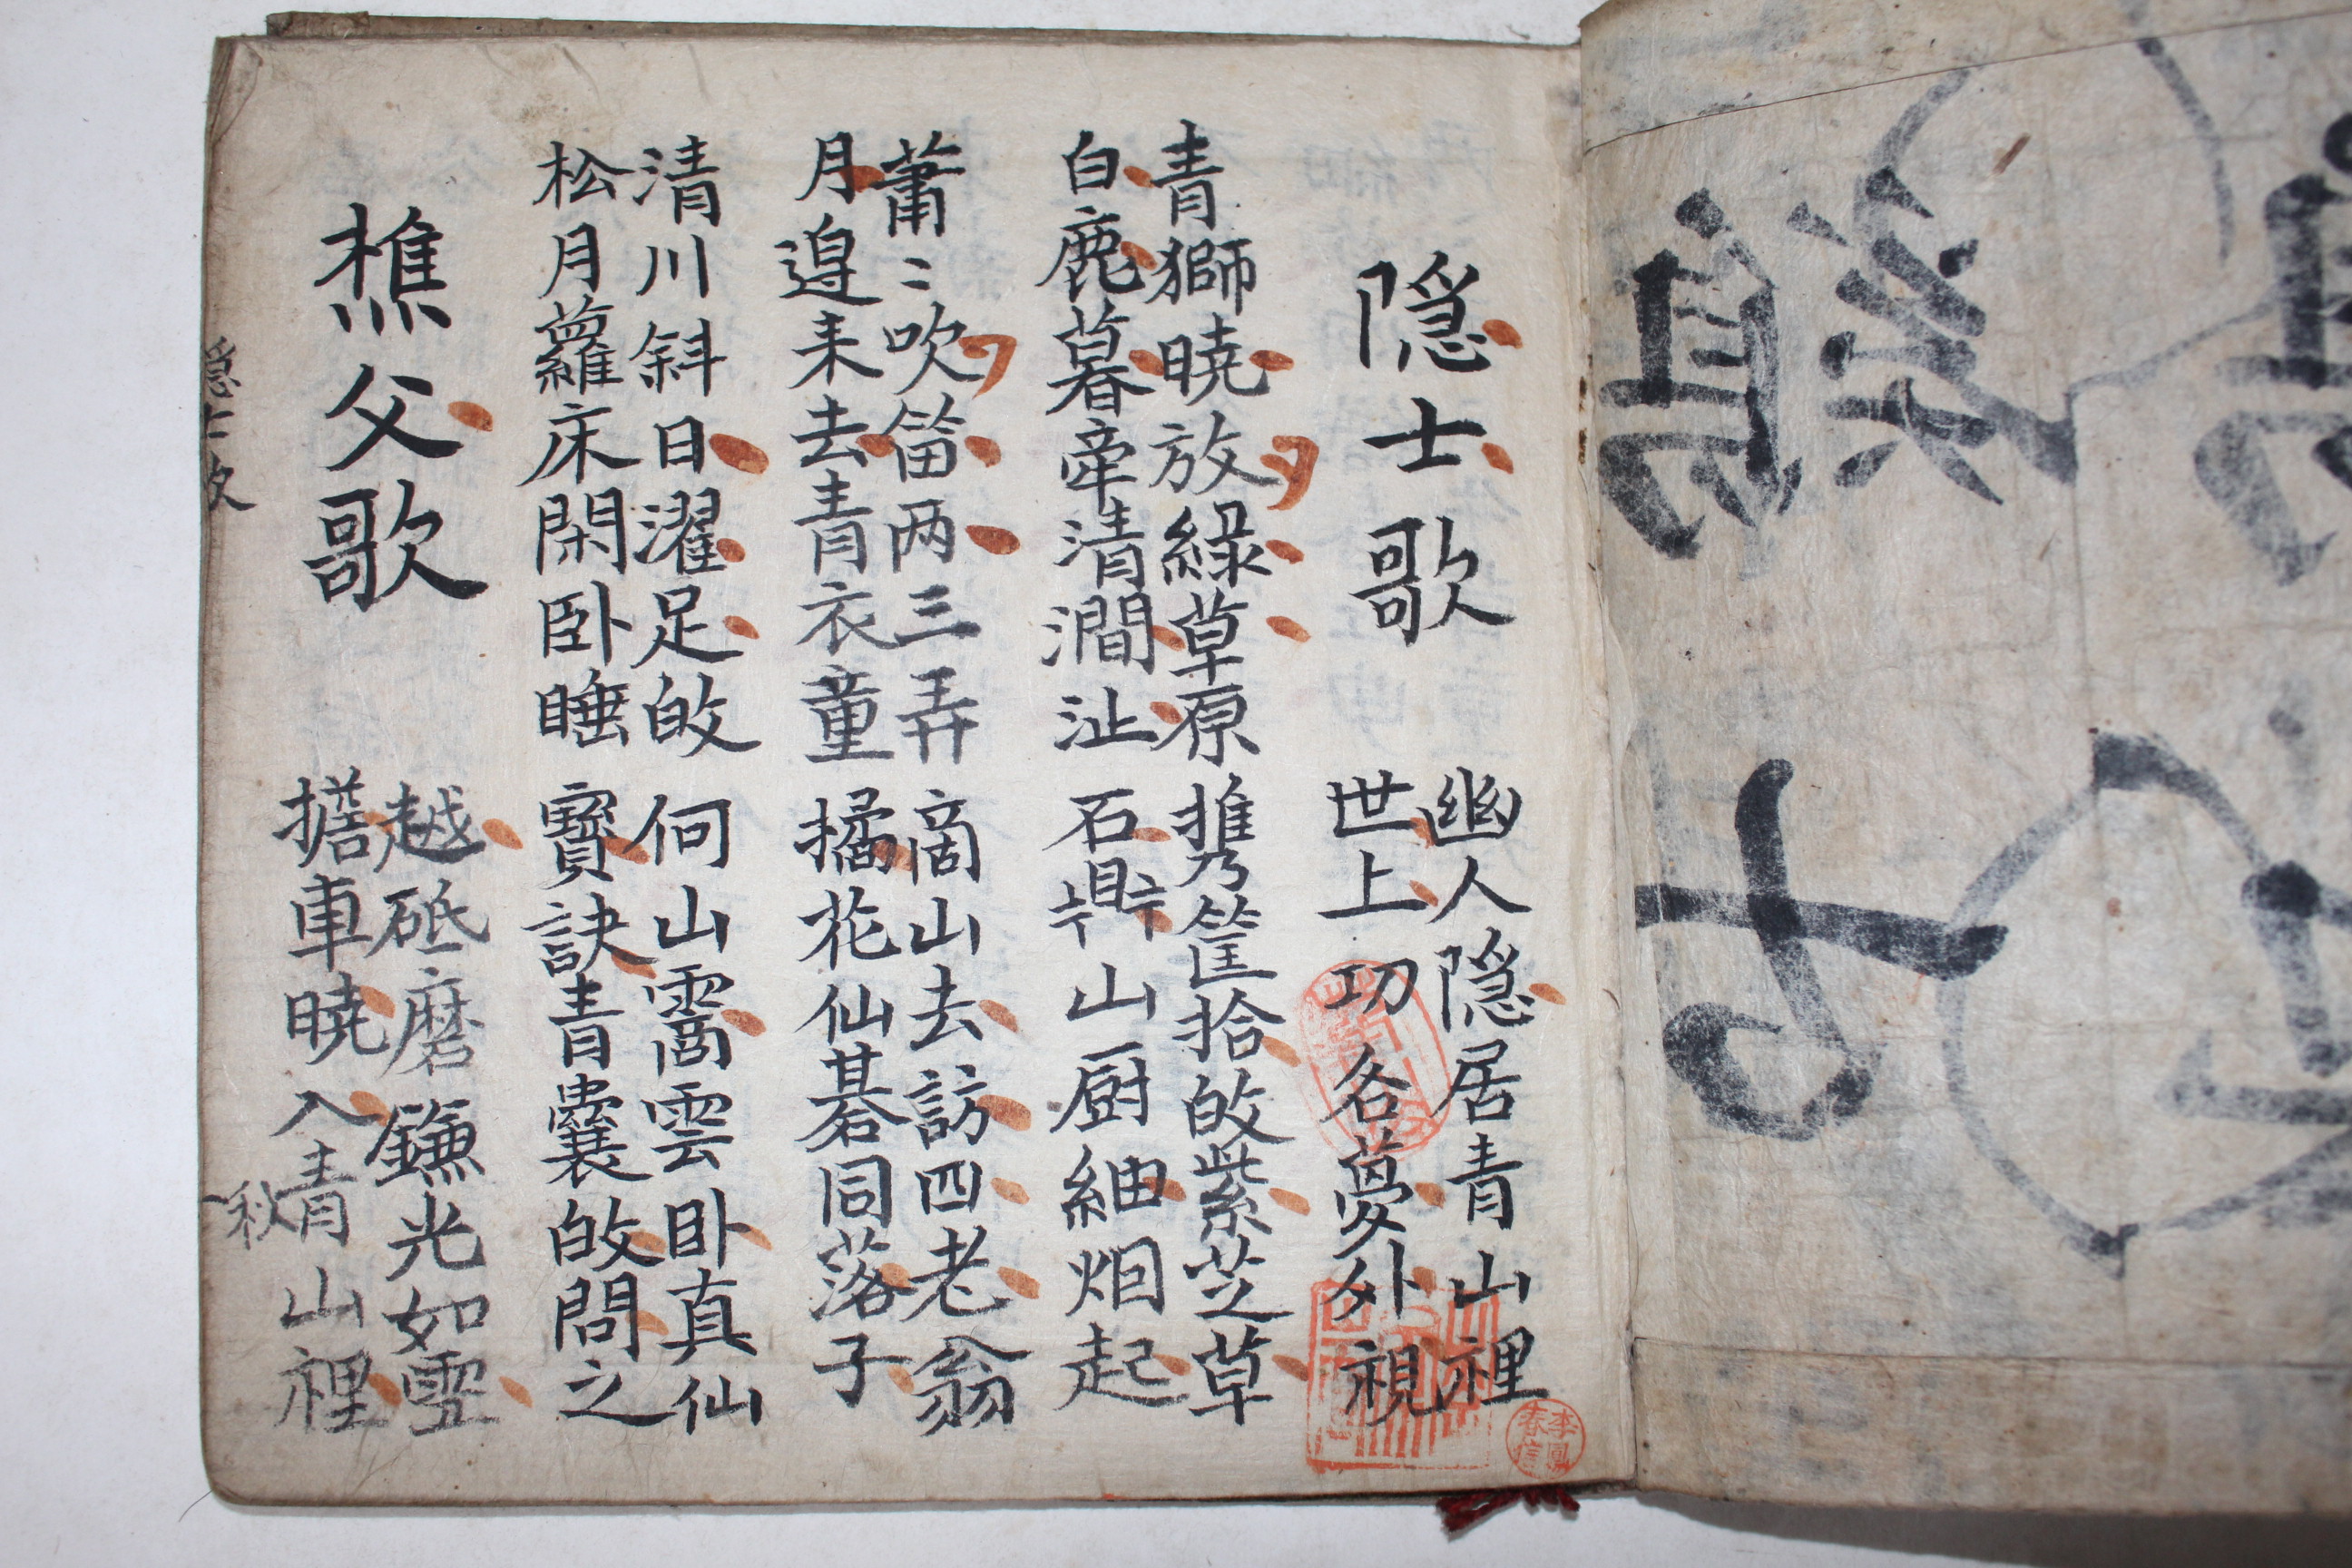 隐士歌
幽人隐居青山裡
世上功名夢外視
青獅曉放綠草原 携筐拾敀紫芝草
白鹿暮牽清澗沚 石鼎山厨細烟起
蕭〻吹笛两三弄 商山去訪四老翁
月邉来去青衣童 橘花仙碁同落子
清川斜日濯足敀 何山霱雲卧真仙
松月蘿床閑卧睡 寳訣青囊敀問之
樵父歌
越砥磨鎌光如雪
擔車曉入青山裡